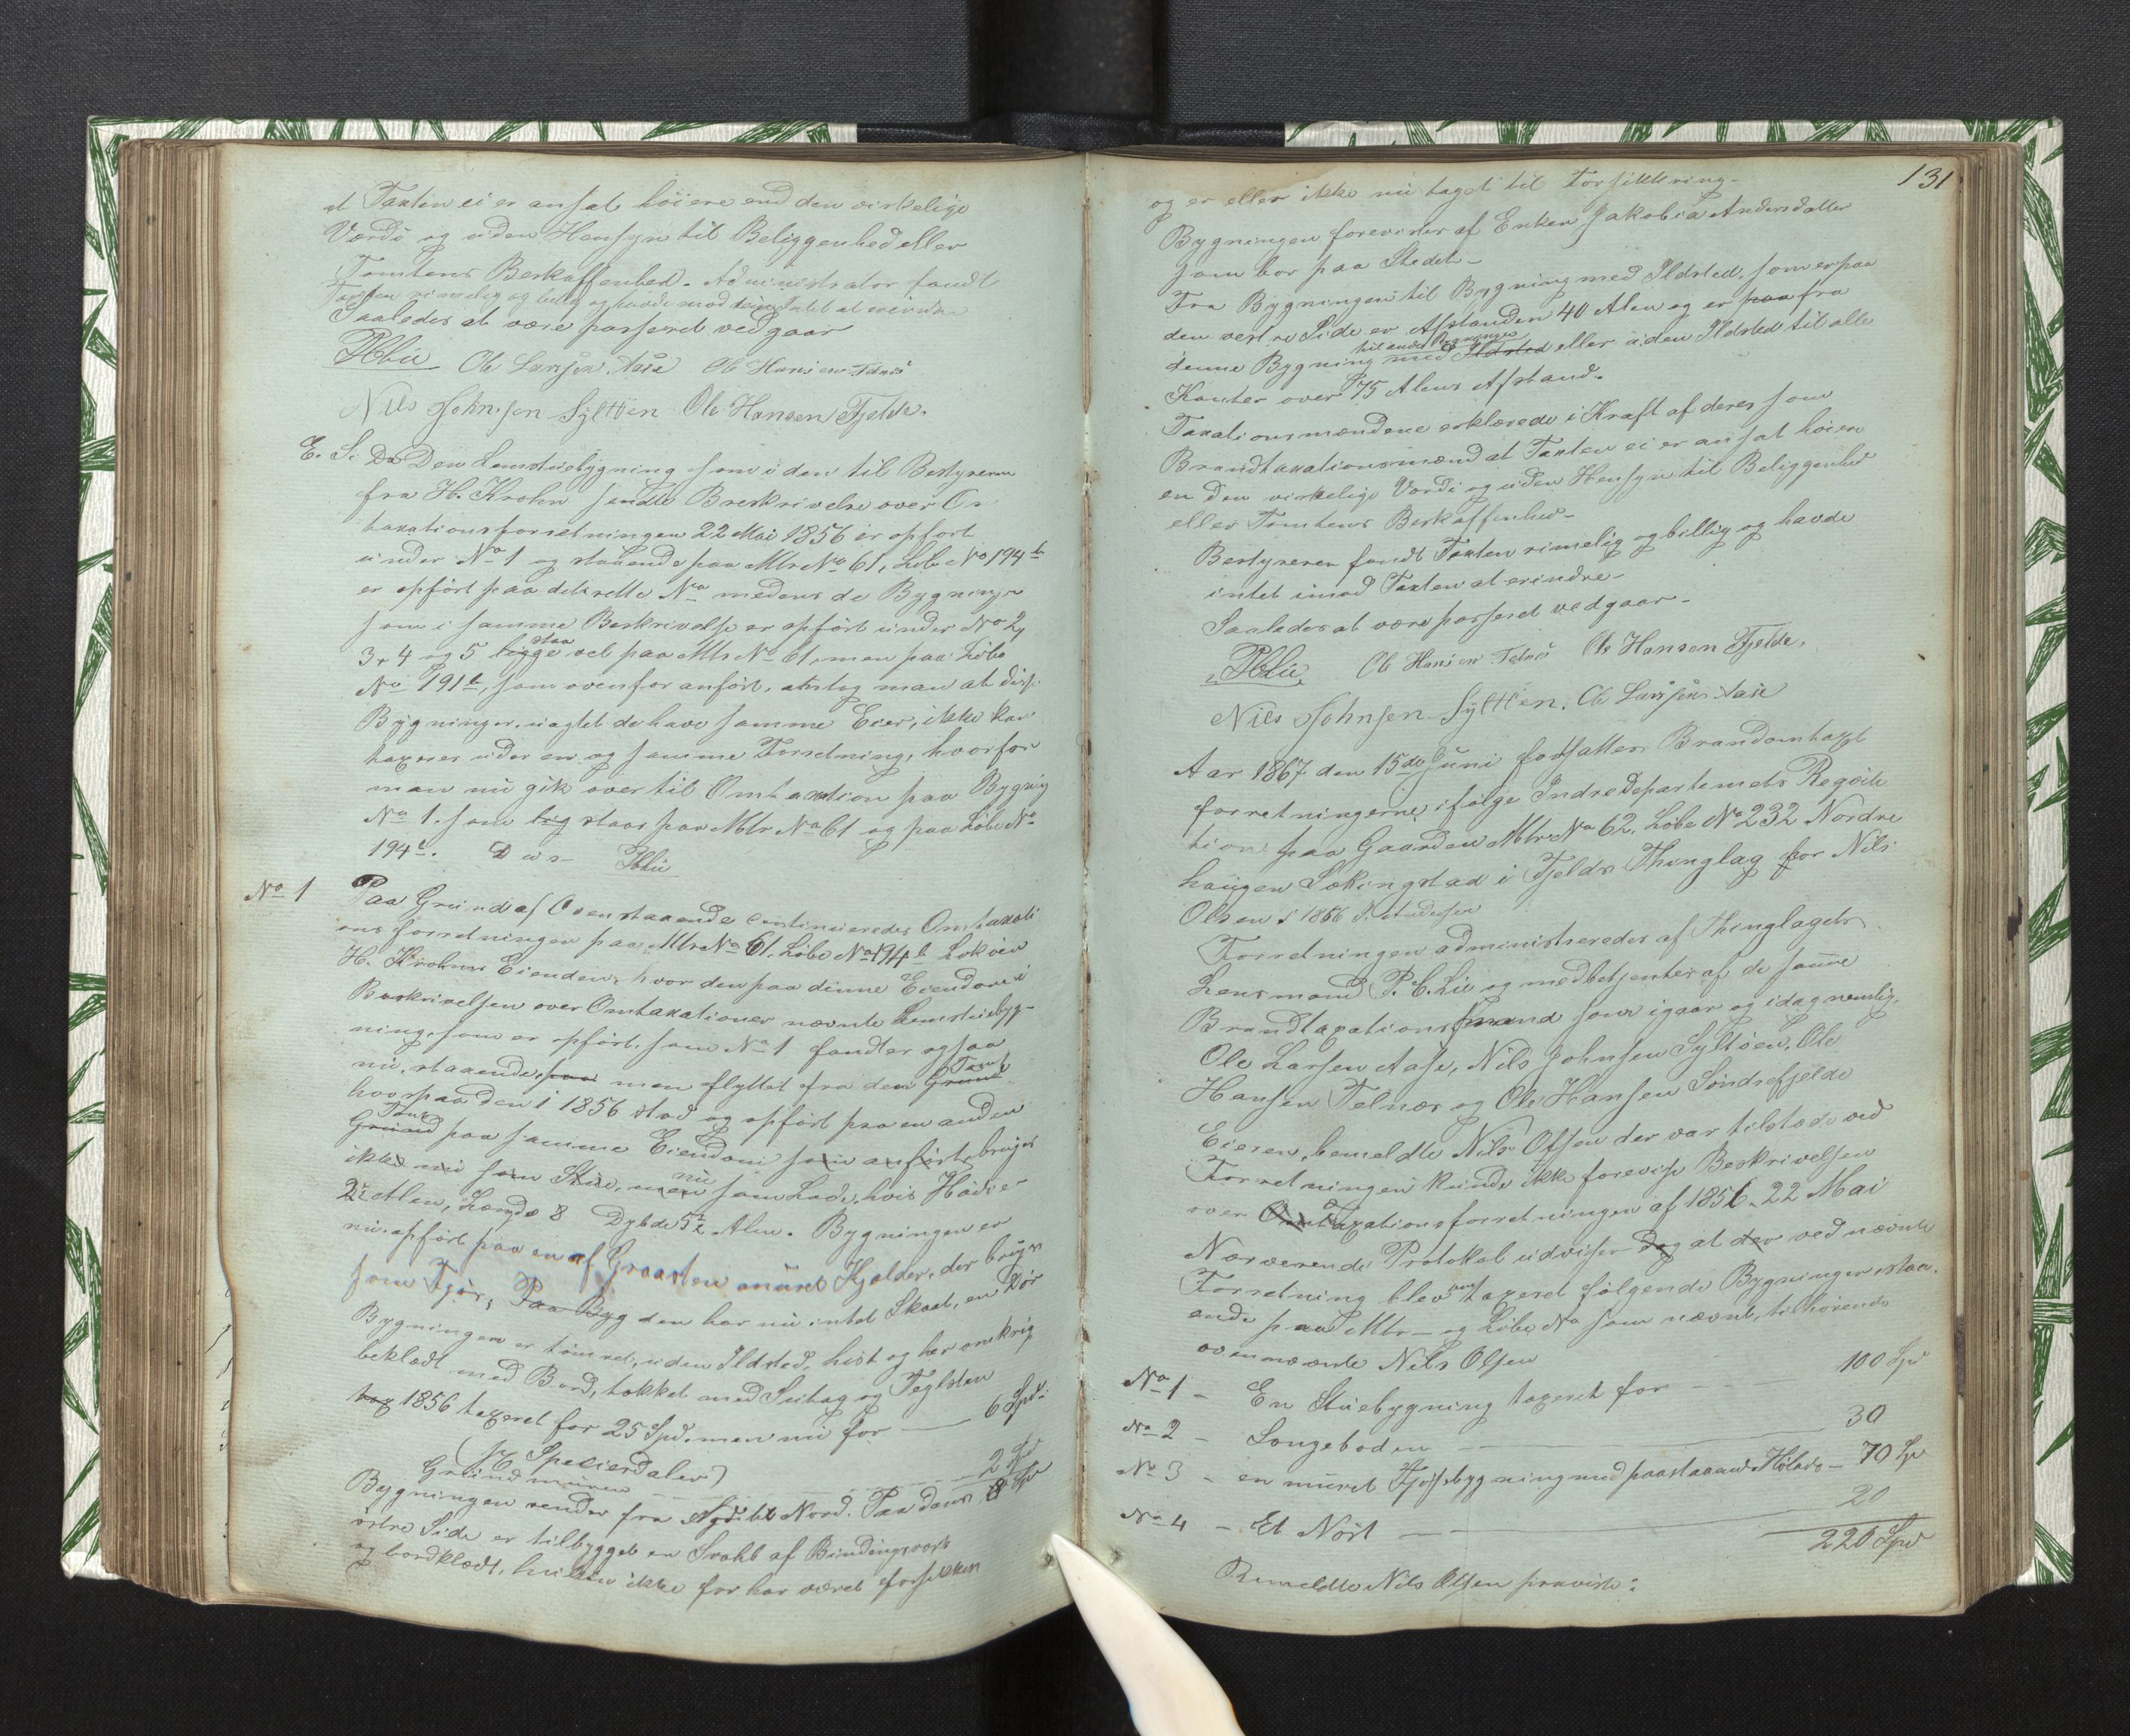 at Taxten ei er ansat höiere end den virkelige
Værdi og uden Hensyn til Beliggenhed eller
Tomtens Beskaffenhed. Administrator fandt
Taxten rimelig og billig og havde mod samme intet at erindre
Saaledes at være passeret vedgaar
PCLie Ole Larsen Aase Ole Hansen Telnes
Nils Johnsen Sylttöen Ole Hansen Fjelde.
E. S. Da Den Lemstuebygning som i den til Bestyreren
fra H. Krohn sendte Breskrivelse over Om
taxationsforretningen 22 Mai 1856 er opfört
under No 1 og staaende paa Mtr No 61, Löbe No 194 b
er opfört paa dets rette No medens de Bygninger
som i samme Beskrivelse er opfört under No 2,
3, 4 og 5 ligge staa vel paa Mtr No 61, men paa Löbe
No 191 b, som ovenfor anfört, antog man at disse
Bygninger, uagtet de have samme Eier, ikke kan
taxeres under en og samme Forretning, hvorfor
man nu gik over til Omtaxation paa Bygning
No 1. som lig staar paa Mtr No 61 og paa Löbe No
194 b. D u s PCLie
No 1 Paa Grund af Ovenstaaende continueredes Omtaxati
ons forretningen paa Mtr No 61. Löbe No 194 b Loköen
H. Krohns Eiendom, hvor den paa denne Eiendom i
Beskrivelsen over Omtaxationen nævnte Lemstuebyg-
ning, som er opfört som No 1 fandtes ogsaa
nu, staaende, paa men flyttet fra den Grund Tomt
hvorpaa den i 1856 stod og opfört paa en anden
Grund Tomt paa samme Eiendom som anfört, bruges
ikke nu som Stue, men nu som Lade, hvis Höide
2½ Alen, Længde 8 Dybde 5½ Alen. Bygningen er
nu opfört paa en af Graasten muret Kjelder, der bruges
som Fjös, Paa Byg den har nu intet Skaat, en Dör
Bygningen er tömret, uden Ildsted, hist og her omkring
beklædt med Bord, tækket med Sutag og Teglsten
tax 1856 taxeret for 25 Spd. men nu for — 6 Spd:
(6 Speciesdaler)
Grundmuren — 2 Spd
Bygningen vender fra Syd til Nord. Paa dens 8 Spd
vestre Side er tilbygget en Svahl af Bindingsværk
og bordklædt, hvilken ikke för har været forsikkret
131
og er eller ikke nu taget til Forsikkring-
Bygningen forevistes af Enken Jakobia Andersdatter
som bor paa Stedet-
Fra Bygningen til Bygning med Ildsted, som er paa
den vestre Side er Afstanden 40 Alen og er paa fra
denne Bygning til andre Bygninger med Ildsted eller uden Ildsted til alle
Kanter over 75 Alens Afstand.
Taxationsmændene erklærede i Kraft af deres som
Brandtaxationsmænd at Taxten ei er ansat höiere
en den virkelige Værdi og uden Hensyn til Beliggenhed
eller Tomtens Beskaffenhed-
Bestyreren fandt Taxten rimelig og billig og havde
intet imod Taxten at erindre-
Saaledes at være passeret vedgaar-
PCLie Ole Hansen Telnes Ole Hansen Fjelde.
Nils Johnsen Sylttöen. Ole Larsen Aase
Aar 1867 den 15de Juni fortsattes Brandomtaxt
forretningerne ifölge Indredepartemets Reqvisi
tion paa Gaarden Mtr No 62, Löbe No 232 Nordre
haugen Sækingstad i Fjelds Thinglag for Nils
Olsen
Forretningen administreredes af Thinglagets
Lensmand P. C. Lie og medbetjentes af de samme
Brandtaxationsmænd som igaar og idag nemlig,
Ole Larsen Aase, Nils Johnsen Syltöen, Ole
Hansen Telnæs og Ole Hansen Söndrefjelde
Eieren, bemeldte Nils Olsen der var tilstede ved
Forretningen kunde ikke forevise Beskrivelsen
over Omtaxationsforretningen af 1856. 22 Mai
Nærværende Protokol udviser dog at der ved nævnte
Forretning blev omtaxeret fölgende Bygninger staa-
ende paa Mtr- og Löbe No som nævnt, tilhörende
ovennævnte Nils Olsen
No 1 - En Stuebygning taxeret for — 100 Spd
No 2 - Sengeboden — 30
No 3 - en muret Fjösbygning med paastaaende Hölade — 70 Spd
No 4 - Et Nöst — 20
220 Spd
Bemeldte Nils Olsen paaviste: